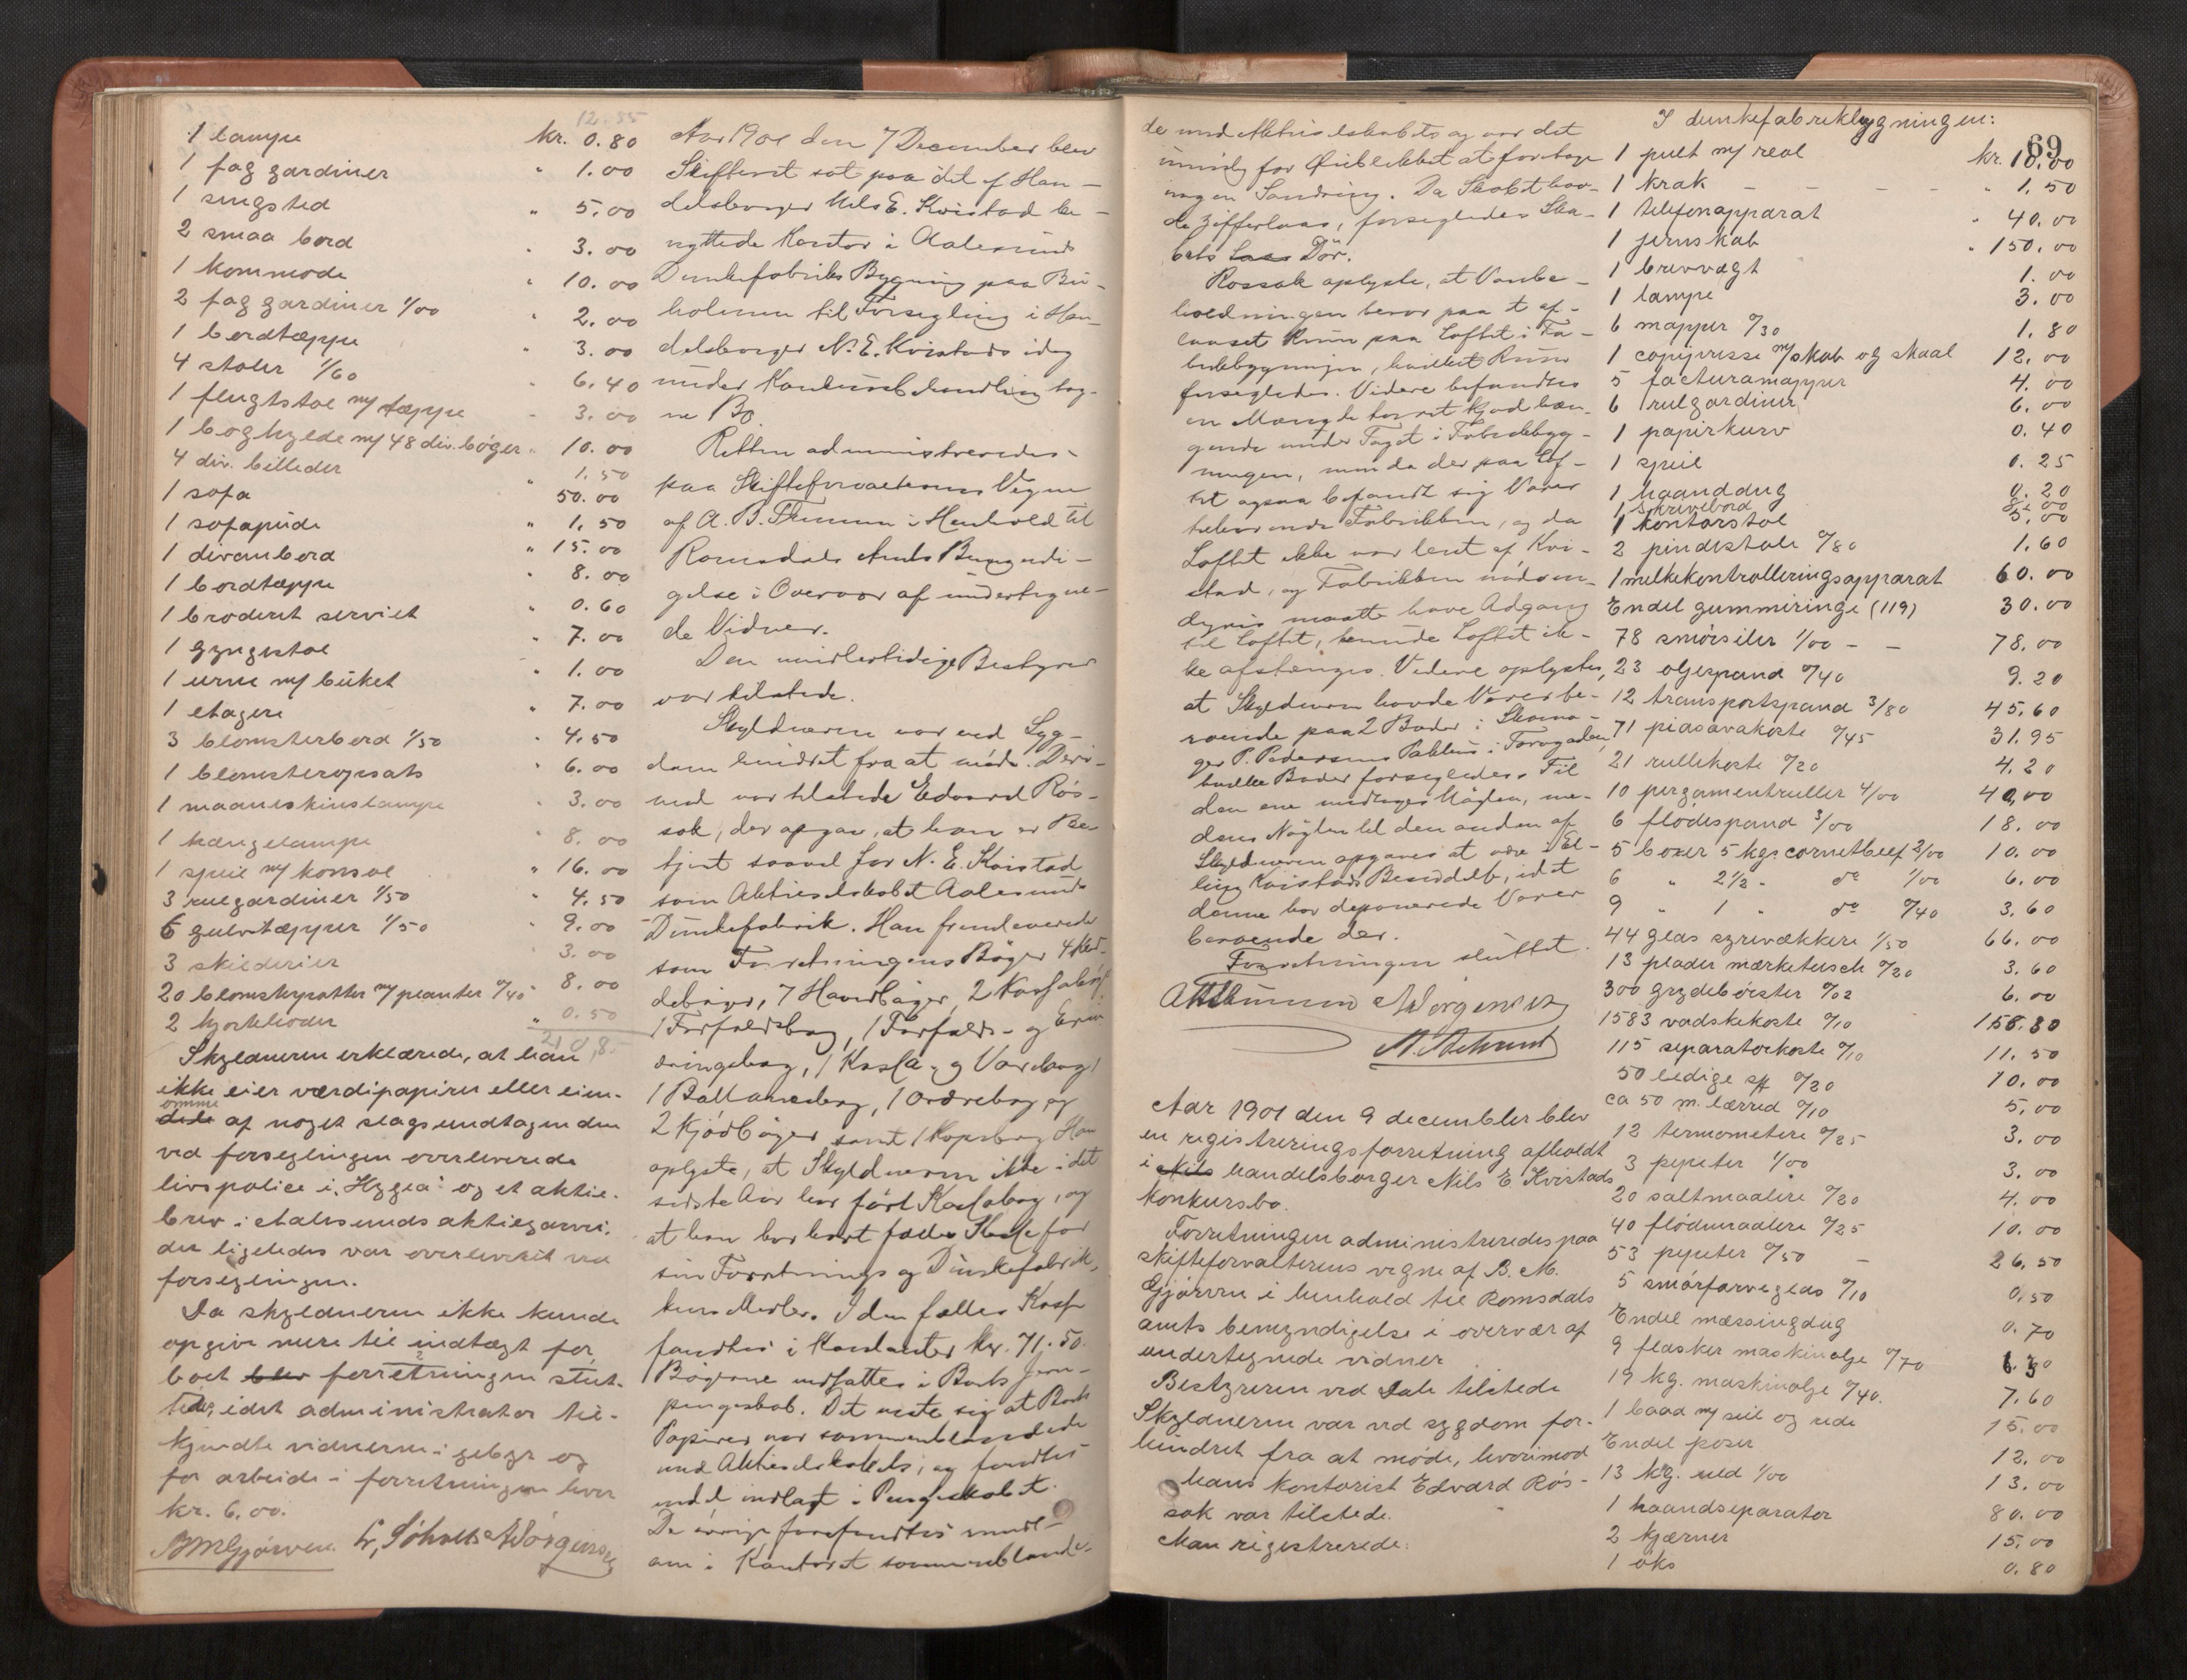 12.85
1 lampe kr. 0.80
1 fag gardiner " 1.00
1 sengsted " 5.00
2 smaa bord " 3.00
1 kommode " 10.00
2 fag gardiner 1/00 " 2.00
1 bordtæppe " 3.00
4 stoler 1/60 " 6.40
1 flugtstol m/ tæppe " 3.00
1 boghylde m/ 48 div. bøger " 10.00
4 div. billeder " 1.50
1 sofa 50.00
1 sofapude " 1.50
1 divanbord " 15.00
1 bordtæppe " 8.00
1 broderet serviet " 0.60
1 gyngestol " 7.00
1 urne m/ buket " 1.00
1 etagere " 7.00
3 blomsterbord 1/50 " 4.50
1 blomsteropsats " 6.00
1 maaneskinslampe " 3.00
1 hængelampe " 8.00
1 speil m/ konsol " 16.00
3 rulgardiner 1/50 " 4.50
6 gulvtæpper 1/50 " 9.00
3 skilderier 3.00
20 blomsterpotter m/ planter 0/40 " 8.00
2 hjortehoder " 0.50
Skyldneren erklærede, at han
ikke eier værdipapirer eller eien-
domme af noget slags undtagen den
ved forseglingen overleverede
livspolice i "Hygea" og et aktie-
brev i Aalesunds aktiegarveri,
der ligeledes var overleveret ved
forseglingen.
Da skyldneren ikke kunde
opgive mere til indtægt for
boet blev forretningen slut-
tet, idet administrator til-
kjendte vidnerne i gebyr og
for arbeide i forretningen hver
kr. 6.00.
BMGjørven L. Søholt A Jørgensen
Aar 1901 den 7 December blev
Skifteret sat paa det af Han-
delsborger Nils E. Kvistad be-
nyttede Kontor i Aalesunds
Dunkefabriks Bygning paa Bu-
holmen til Forsegling i Han-
delsborger N. E. Kvistads idag
under Konkursbehandling tag-
ne Bo.
Retten administreredes
paa Skifteforvalterens Vegne
af A. B. Thunem i Henhold til
Romsdals Amts Bemyndi-
gelse i Overvær af undertegne-
de Vidner.
Den midlertidige Bestyrer
var tilstede.
Skyldneren var ved Syg-
dom hindret fra at møde. Deri-
mod var tilstede Edvard Rös-
sok, der opgav, at han er Be-
tjent saavel for N. E. Kvistad
som Aktieselskabet Aalesunds
Dunkefabrik. Han fremleverede
som Forretningens Bøger 4 Klad-
debøger, 7 Hovedbøger, 2 Kassabøger
1 Forfaldsbog, 1 Forfalds- og Erin-
dringsbog, 1 Kassa- og Varebog,
1 Ballancebog, 1 Ordrebog og
2 Kjødbøger samt 1 Kopibog. Han
oplyste, at Skyldneren ikke i det
sidste Aar har ført Kassabog, og
at han har havt fælles Kasse for
sin Forretnings og Dunkefabrik-
kens Midler. I den fælles Kasse
fandtes i Kontanter kr. 71.50.
Bøgerne indsattes i Boets Jern-
pengeskab. Det viste sig at Boets
Papirer var sammenblandede
med Aktieselskabets, og fandtes
endel indlagt i Pengeskabet.
De øvrige forefandtes rundt-
om i Kontoret sammenblande-
de med Aktieselskabets og var det
umulig for Øieblikket at foretage
nogen Sondring. Da Skabet hav-
de Zifferlaas, forsegledes Ska-
bets Laas Dör.
Rossok oplyste, at Vanbe-
holdningen beror paa et af-
laaset Rum paa Loftet i Fa-
brikbygningen, hvilket Rum
forsegledes. Videre befandtes
en Mængde tørret Kjød hæn-
gende under Taget i Fabrikbyg-
ningen, men da der paa Lof-
tet ogsaa befandt sig Varer
tilhørende Fabrikken, og da
Loftet ikke var leiet af Kvi-
stad, og Fabrikken nødven-
digvis maatte have Adgang
til Loftet, kunde Loftet ik-
ke afstænges. Videre oplystes,
at Skyldneren havde Varer be-
roende paa 2 Boder i Skoma-
ger P. Pedersens Pakhus i Torvgaden,
hvilke Boder forsegledes. Til
den ene medtoges Nøglen, me-
dens Nøglen til den anden af
Skyldneren opgaves at være i El-
ling Kvistads Besiddelse, idet
denne har deponerede Varer
beroende der.
Forretningen sluttet.
ABThunem A Jørgensen
Aar 1901 den 9 december blev
en registreringsforretning afholdt
i Nils handelsborger Nils E. Kvistads
konkursbo.
Forretningen administreredes paa
skifteforvalterens vegne af B. M.
Gjørven i henhold til Romsdals
amts bemyndigelse i overvær af
undertegnede vidner
Bestyreren ved Dale tilstede
Skyldneren var ved sygdom for-
hindret fra at møde, hvorimod
hans kontorist Edvard Røs-
sok var tilstede.
Man registrerede:
69
I dunkefabrikbygningen:
1 pult m/ reol kr. 10.00
1 krak " 1.50
1 telefonapparat " 40.00
1 jernskab " 150.00
1 brevvægt 1.00
1 lampe 3.00
6 mapper 0/30 1.80
1 copipresse m/ skab og skaal 12.00
5 facturamapper 4.00
6 rulgardiner 6.00
1 papirkurv 0.40
1 speil 0.25
1 haanddug 0.20
1 skrivebord 8.00
1 kontorstol 5.00
2 pindestole 0/80 1.60
1 melkekontrolleringsapparat 60.00
Endel gummiringe (119) 30.00
78 smörsiler 1/00 78.00
23 oljespand 0/40 9.20
12 transportspand 3/80 45.60
71 piasavakoste 0/45 31.95
21 rullekoste 0/20 4.20
10 pergamentruller 4/00 40.00
6 flödespand 3/00 18.00
5 boxer 5 kgs cornetbeef 2/00 10.00
6 " 2½ " do 1/00 6.00
9 " 1 " do 0/40 3.60
44 glas syrevækkere 1/50 66.00
13 plader mærketusch 0/20 3.60
300 grydebørster 0/02 6.00
1583 vadskekoste 0/10 158.80
115 separatorkoste 0/10 11.50
50 ledige sk 0/20 10.00
ca 50 m. lærred 0/10 5.00
12 termometere 0/25 3.00
3 pipeter 1/00 3.00
20 saltmaalere 0/20 4.00
40 flödemaalere 0/25 10.00
53 pipeter 0/50 26.50
5 smörfarveglas 0/10 0.50
Endel messingdug 0.70
9 flasker maskinolje 0/70 6.30
19 kg. maskinolje 0/40. 7.60
1 baad m/ seil og rede 15.00
Endel poser 12.00
13 kg. uld 1/00 13.00
1 haandseparator 80.00
2 kjærner 15.00
1 öks 0.80